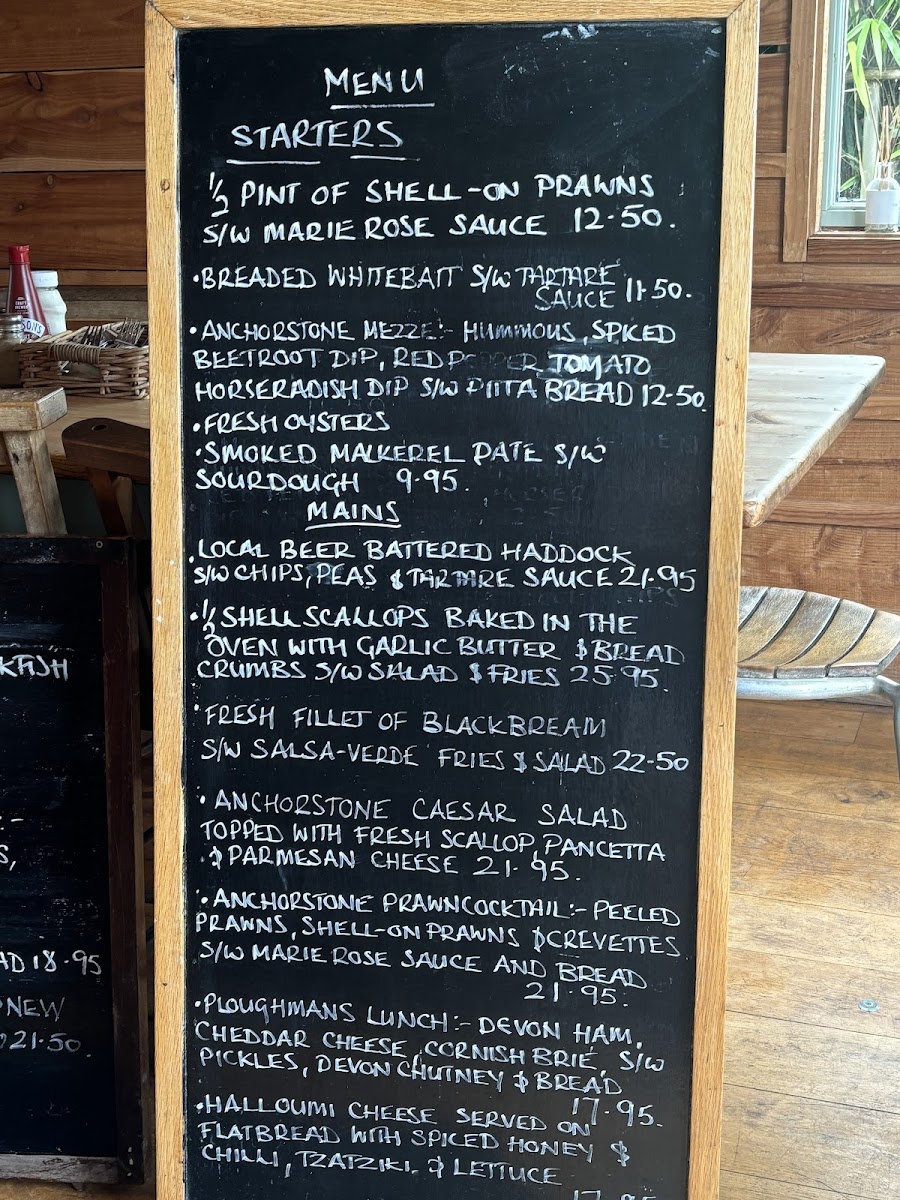 MENU
STARTERS
½ PINT OF SHELL-ON PRAWNS
S/W MARIE ROSE SAUCE 12-50.
•BREADED WHITEBAIT S/W TARTARE
SAUCE 11-50.
•ANCHORSTONE MEZZE:- HUMMOUS, SPICED
BEETROOT DIP, RED PEPPER TOMATO
HORSERADISH DIP S/W PITTA BREAD 12-50.
•FRESH OYSTERS
•SMOKED MACKEREL PATE S/W
SOURDOUGH 9.95.
MAINS
•LOCAL BEER BATTERED HADDOCK
S/W CHIPS, PEAS & TARTARE SAUCE 21-95
•½ SHELL SCALLOPS BAKED IN THE
OVEN WITH GARLIC BUTTER & BREAD
CRUMBS S/W SALAD & FRIES 25-95.
•FRESH FILLET OF BLACKBREAM
S/W SALSA-VERDE FRIES & SALAD 22-50
•ANCHORSTONE CAESAR SALAD
TOPPED WITH FRESH SCALLOP, PANCETTA
& PARMESAN CHEESE 21.95.
•ANCHORSTONE PRAWNCOCKTAIL:- PEELED
PRAWNS, SHELL-ON PRAWNS & CREVETTES
S/W MARIE ROSE SAUCE AND BREAD
21.95.
•PLOUGHMANS LUNCH:- DEVON HAM,
CHEDDAR CHEESE, CORNISH BRIE, S/W
PICKLES, DEVON CHUTNEY & BREAD
17.95.
•HALLOUMI CHEESE SERVED ON
FLATBREAD WITH SPICED HONEY &
CHILLI, TZATZIKI & LETTUCE
17.95
18.95
NEW
21.50.